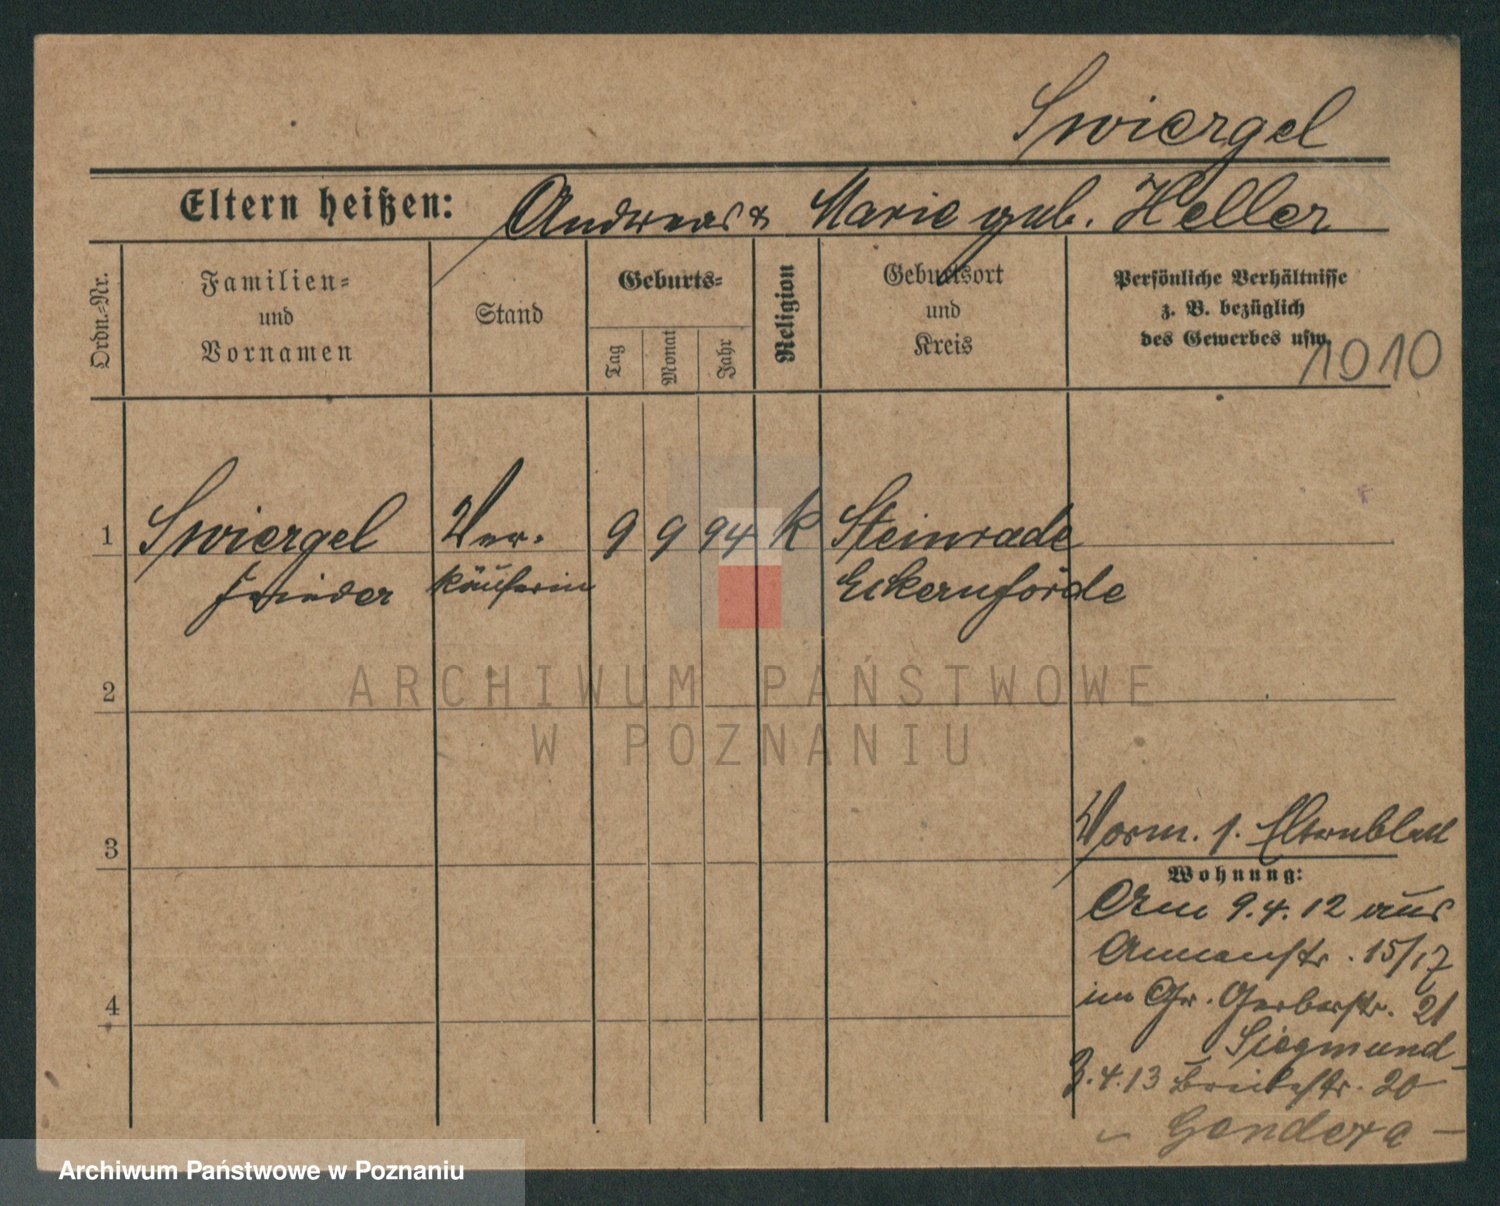 Swiergel
Eltern heißen: Andreas & Marie geb. Heller
Ordn.-Nr.
Familien-
und
Vornamen
Stand
Geburts-
Tag
Monat
Jahr
Religion
Geburtsort
und
Kreis
Persönliche Verhältnisse
z. B. bezüglich
des Gewerbes usw.
1010
1 Swiergel Ver- 9 9 94 k Steinrade
Frieder käuferin Eckernförde
2
ARCHIWUM PAŃSTWOWE
W POZNANIU
3
Vorm. s. Elternblatt
Wohnung:
Am 9.4.12 aus
Annenstr. 15/17
in Gr. Gerberstr. 21
4
Siegmund
3.4.13 Breitestr. 20
Gondera
Archiwum Państwowe w Poznaniu